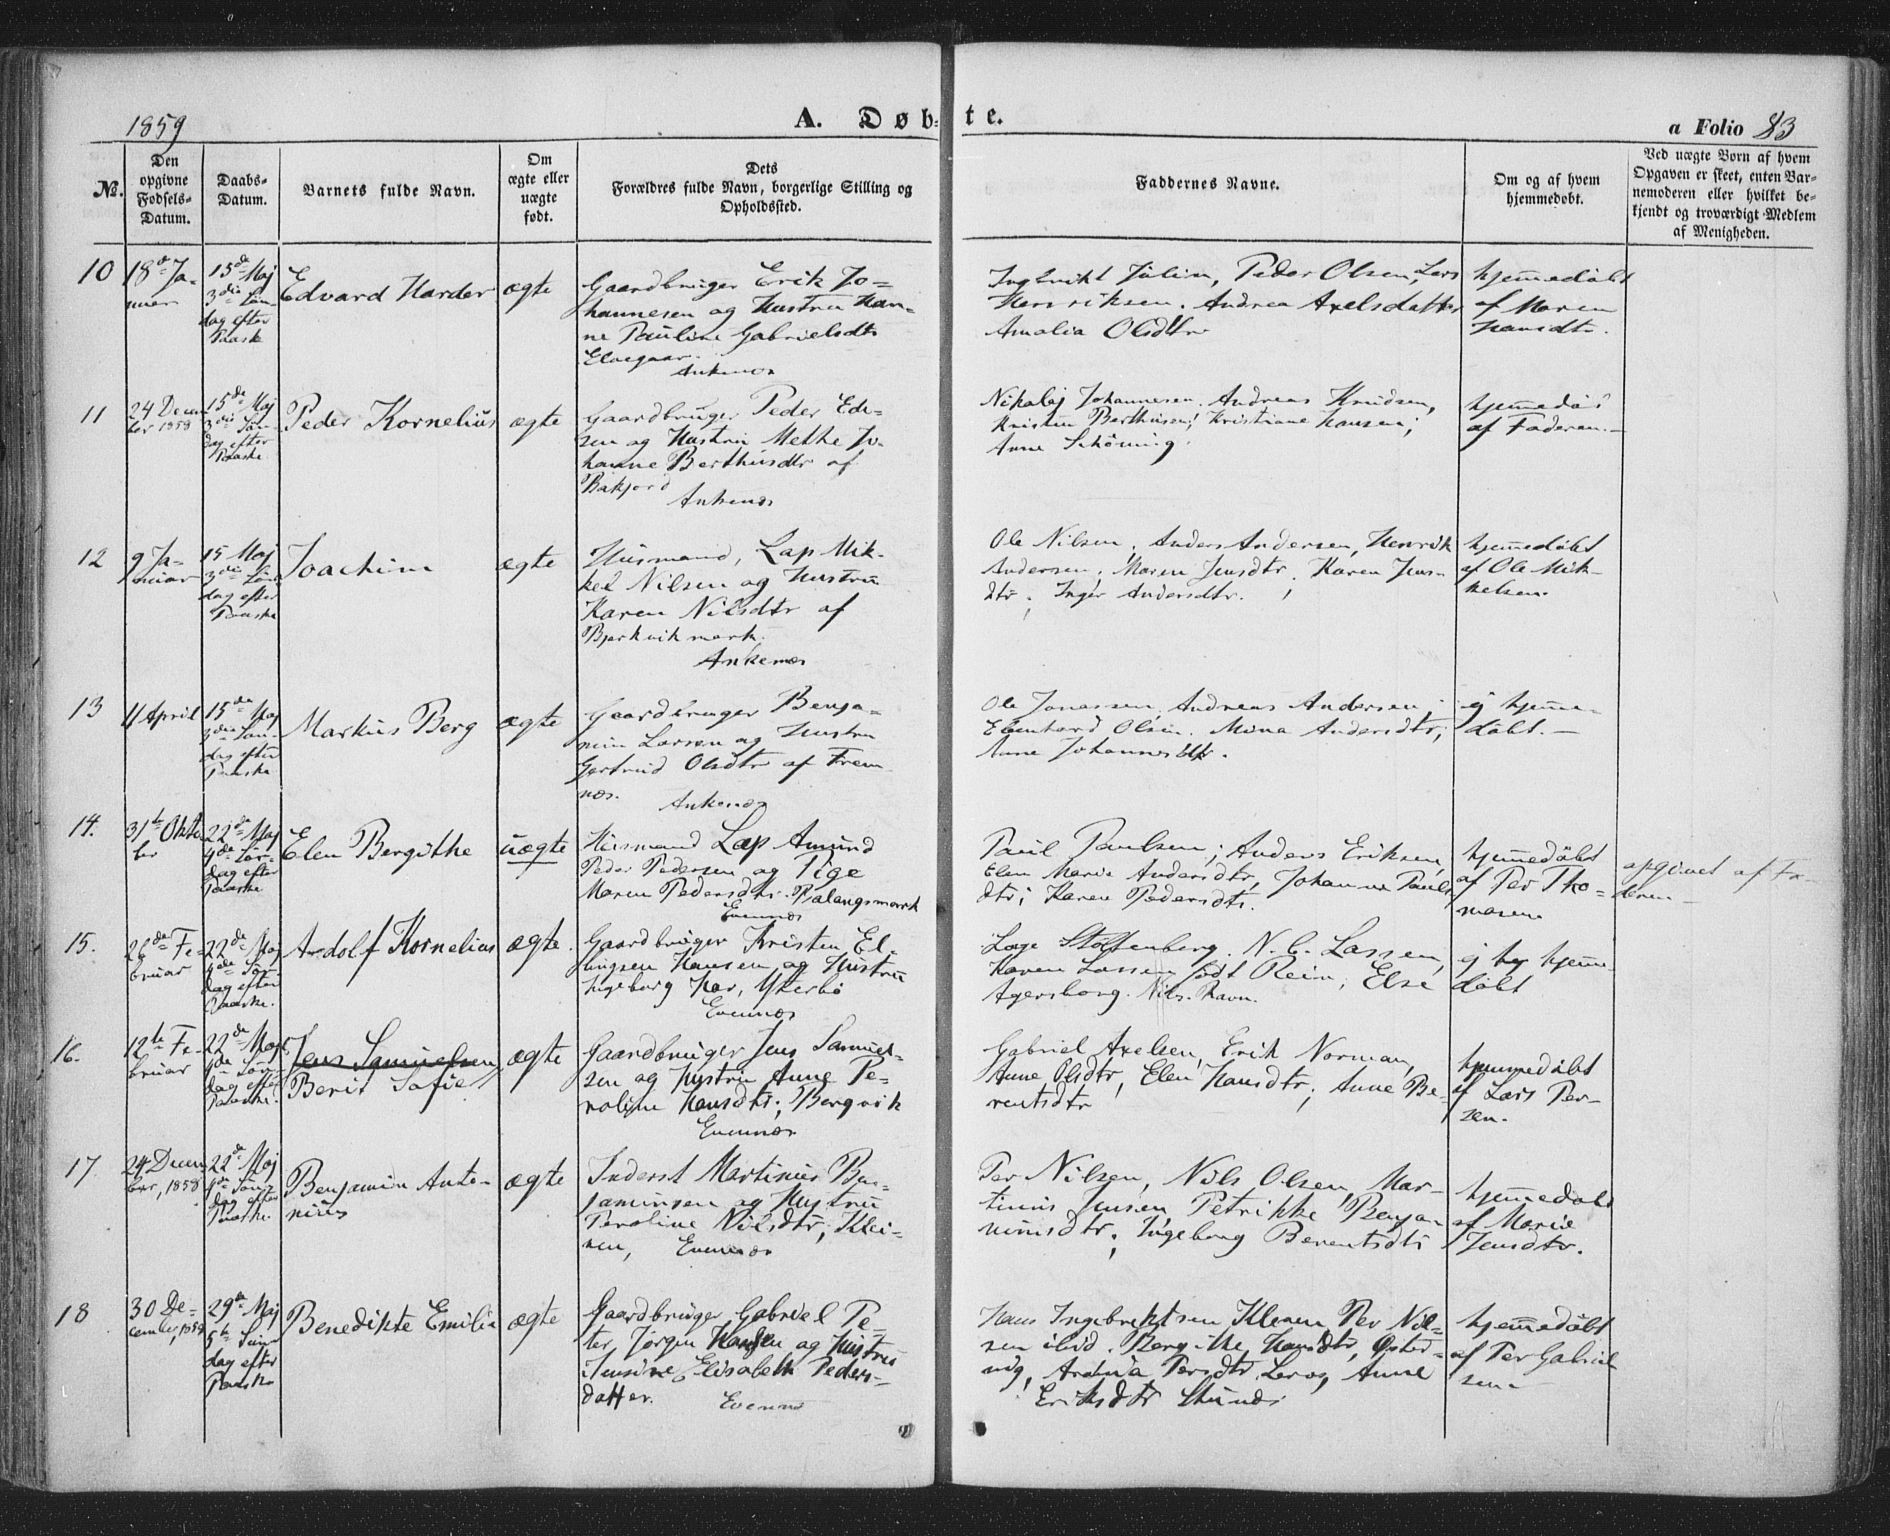 1859
A. Døbte.
a Folio 83
No.
Den opgivne Fødsels-Datum.
Daabs-Datum.
Barnets fulde Navn.
Om ægte eller uægte født.
Dets Forældres fulde Navn, borgerlige Stilling og Opholdssted.
Faddernes Navne.
Om og af hvem hjemmedøbt.
Ved uægte Børn af hvem Opgaven er skeet, enten Barnemoderen eller hvilket bekjendt og troværdigt Medlem af Menigheden.
10
18de Ja-
nuar
15de Maj
3die Søn-
dag efter
Paaske
Edvard Harder
ægte
Gaardbruger Erik Jo-
hannesen og Hustru Han-
ne Pauline Gabrielsdtr
Elvegaar.
Ankenæs
Ingbrikt Julin, Peder Olsen, Lars
Henriksen. Andrea Axelsdatter
Amalia Olsdtr
hjemmedøbt
af Maren
Hansdtr.
11
24 Decem
ber 1858
15de Maj
3die Søn-
dag efter
Paaske
Peder Kornelius
ægte
Gaardbruger Peder Ede-
sen og Hustru Methe Jo-
hanne Berthusdtr af
Bakjord
Ankenæs
Nikolaj Johannesen. Andreas Knudsen,
Kristen Berthusen; Kristiane Hansen;
Anne Schöning.
hjemmedøb
af Faderen.
12
9 Ja-
nuar
15 Maj
3die Søn-
dag efter
Paaske
Joachim
ægte
Husmand, Lap Mik-
kel Nilsen og Hustru
Karen Nilsdtr af
Bjerkvikmark.
Ankenæs
Ole Nilsen, Anders Andersen, Henrik
Andersen; Maren Jensdtr, Karen Jens-
dtr; Inger Andersdtr.
hjemmedøbt
af Ole Mik-
kelsen.
13
11 April
15de Maj
3die Søn-
dag efter
Paaske
Markus Berg
ægte
Gaardbruger Benja-
min Larsen og Hustru
Gertrud Olsdtr af Frem-
næs.
Ankenæs
Ole Jonassen, Andreas Andersen;
Edenhard Olsen. Mina Andersdtr;
Anne Johannesdtr.
ej hjemme-
døbt.
14.
31te Okto
ber
22de Maj
4de Søn-
dag efter
Paaske
Elen Bergithe
uægte
Husmand Lap Amund
Peder Pedersen og Pige
Maren Pedersdtr. Balangsmark
Evenæs
Paul Paulsen; Anders Eriksen,
Elen Marie Andersdtr, Johanne Pauls
dtr; Karen Pedersdtr.
hjemmedøbt
af Per Tho-
masen
opgivet af Fa-
deren
15.
26de Fe-
bruar
22de Maj
4de Søn-
dag efter
Paaske.
Ardolf Kornelius
ægte.
Gaardbruger Kristen El-
lingsen Hansen og Hustru
Ingeborg Kar, Ytterbø
Evenæs
Lage Stoltenberg. N. C. Lassen,
Karen Lassen født Rein, Else
Agersborg. Nils Ravn.
ej hjemme-
døbt
16.
12te Fe-
bruar
22de Maj
4de Søn-
dag efter
Paaske.
Jens Samuelsen
Berit Sofie
ægte
Gaardbruger Jens Samuel-
sen og Hustru Anne Pe-
roline Hansdtr; Bergvik
Evenæs
Gabriel Axelsen, Erik Norman,
Anne Olsdtr, Elen Hansdtr; Anne Be-
rentsdtr
hjemmedøbt
af Lars Per-
sen.
17.
24 Decem
ber, 1858
22de Maj
4de Søn-
dag efter
Paaske.
Benjamin Anto-
nius
ægte
Inderst Martinus Ben-
jaminsen og Hustru
Peroline Nilsdtr, Klei-
ven, Evenæs
Per Nilsen, Nils Olsen, Mar-
tinus Jensen Petrikke Benja-
minsdtr; Ingeborg Berentsdtr
hjemmedøbt
af Marie
Jensdtr.
18
30 De-
cember, 1858
29de Maj
5te Søn-
dag efter
Paaske
Benedikte Emilie
ægte
Gaardbruger Gabriel Pe-
ter, Jørgen Hansen og Hustru
Jensine Elisabeth Peders-
datter.
Evenæs
Hans Ingebriktsen Kleven Per Nil-
sen ibid. Bergithe Hansdtr, Øster-
vig, Andrea Persdtr Leros, Anne
Eriksdtr Stunds
hjemmedøbt
af Per Gabriel
sen